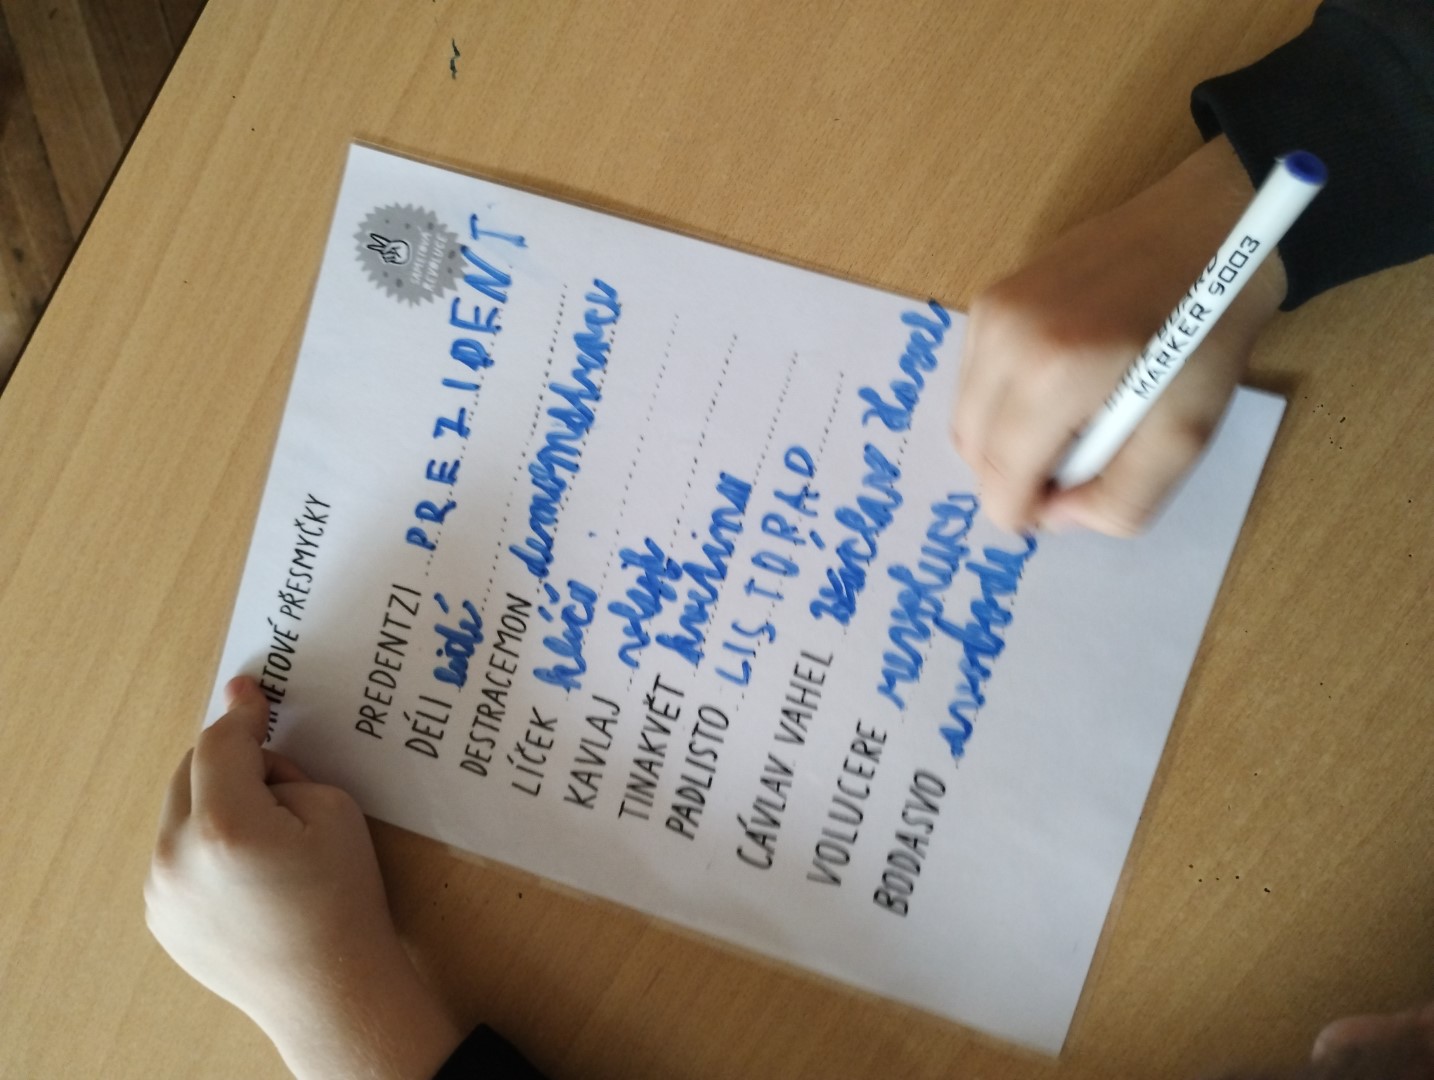 SAMETOVÁ REVOLUCE
SAMETOVÉ PŘESMYČKY
PREDENTZI PREZIDENT
DÉLI lidé
DESTRACEMON demonstrace
LÍČEK klíče
KAVLAJ
TINAKVĚT květina
PADLISTO LISTOPAD
CÁVLAV VAHEL Václav Havel
VOLUCERE revoluce
BODASVO svoboda
MARKER 9003